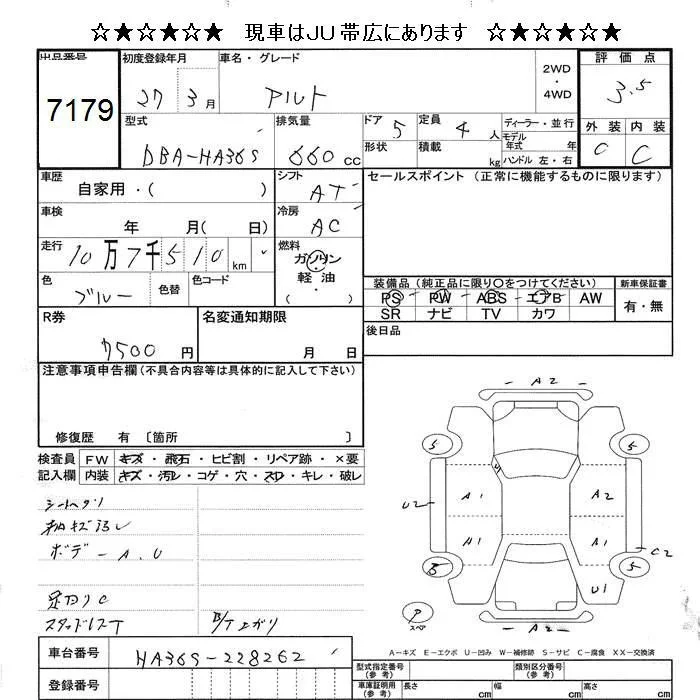 ☆★☆★☆★ 現車はJU帯広にあります ☆★☆★☆★
出品番号 7179
初度登録年月 27 3月
車名・グレード アルト
2WD・4WD
評価点 3.5
外装 C 内装 C
型式 DBA-HA36S
排気量 660 cc
ドア 5
形状
定員 4 人
積載 kg
ディーラー・並行
モデル年式 年
ハンドル 左・右
車歴 自家用・( )
シフト AT
セールスポイント (正常に機能するものに限ります)
車検 年 月( 日)
冷房 AC
走行 10万7千510 km
燃料 ガソリン・軽油・( )
色 ブルー 色替 色コード
装備品 (純正品に限り○をつけてください)
PS PW ABS エアB AW
SR ナビ TV カワ
新車保証書 有・無
R券 7500 円
名変通知期限 月 日
後日品
注意事項申告欄 (不具合内容等は具体的に記入して下さい)
修復歴 有 〔箇所 〕
検査員記入欄
FW キズ・飛石・ヒビ割・リペア跡・×要
内装 キズ・汚レ・コゲ・穴・スレ・キレ・破レ
シートヘタリ
内キズ汚レ
ボデーA.U
足回りC
スタッドレスT
B/T上ガリ
A2
5 5
U
A1 A2
U2
A1 A1
C2
5 5
U1
P
スペア
A2
A-キズ E-エクボ U-凹み W-補修跡 S-サビ C-腐食 XX-交換済
車台番号 HA36S-228262
登録番号
型式指定番号 (参考)
類別区分番号 (参考)
車庫証明用 (参考) 長さ cm 幅 cm 高さ cm